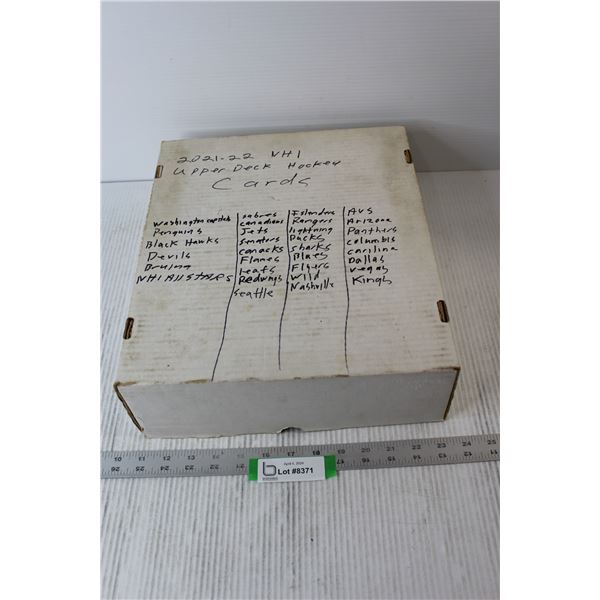 2021-22 NHl
Upper Deck Hockey
Cards
Washington capitals
Penguins
Black Hawks
Devils
Bruins
NHl All STARS
sabres
canadians
Jets
senators
canacks
Flames
Leafs
Redwings
seattle
Islanders
Rangers
lightning
Ducks
sharks
Blues
Flyers
Wild
Nashville
AVS
Arizona
Panthers
columbis
caroline
Dallas
vegas
Kings
10 11 12 13 14 15 16 17 18 19 20 21 22 23 24 25
April 4, 2024
Lot #8371
26 25 24 23 22 21 20 17 16 15 14 13 12 11